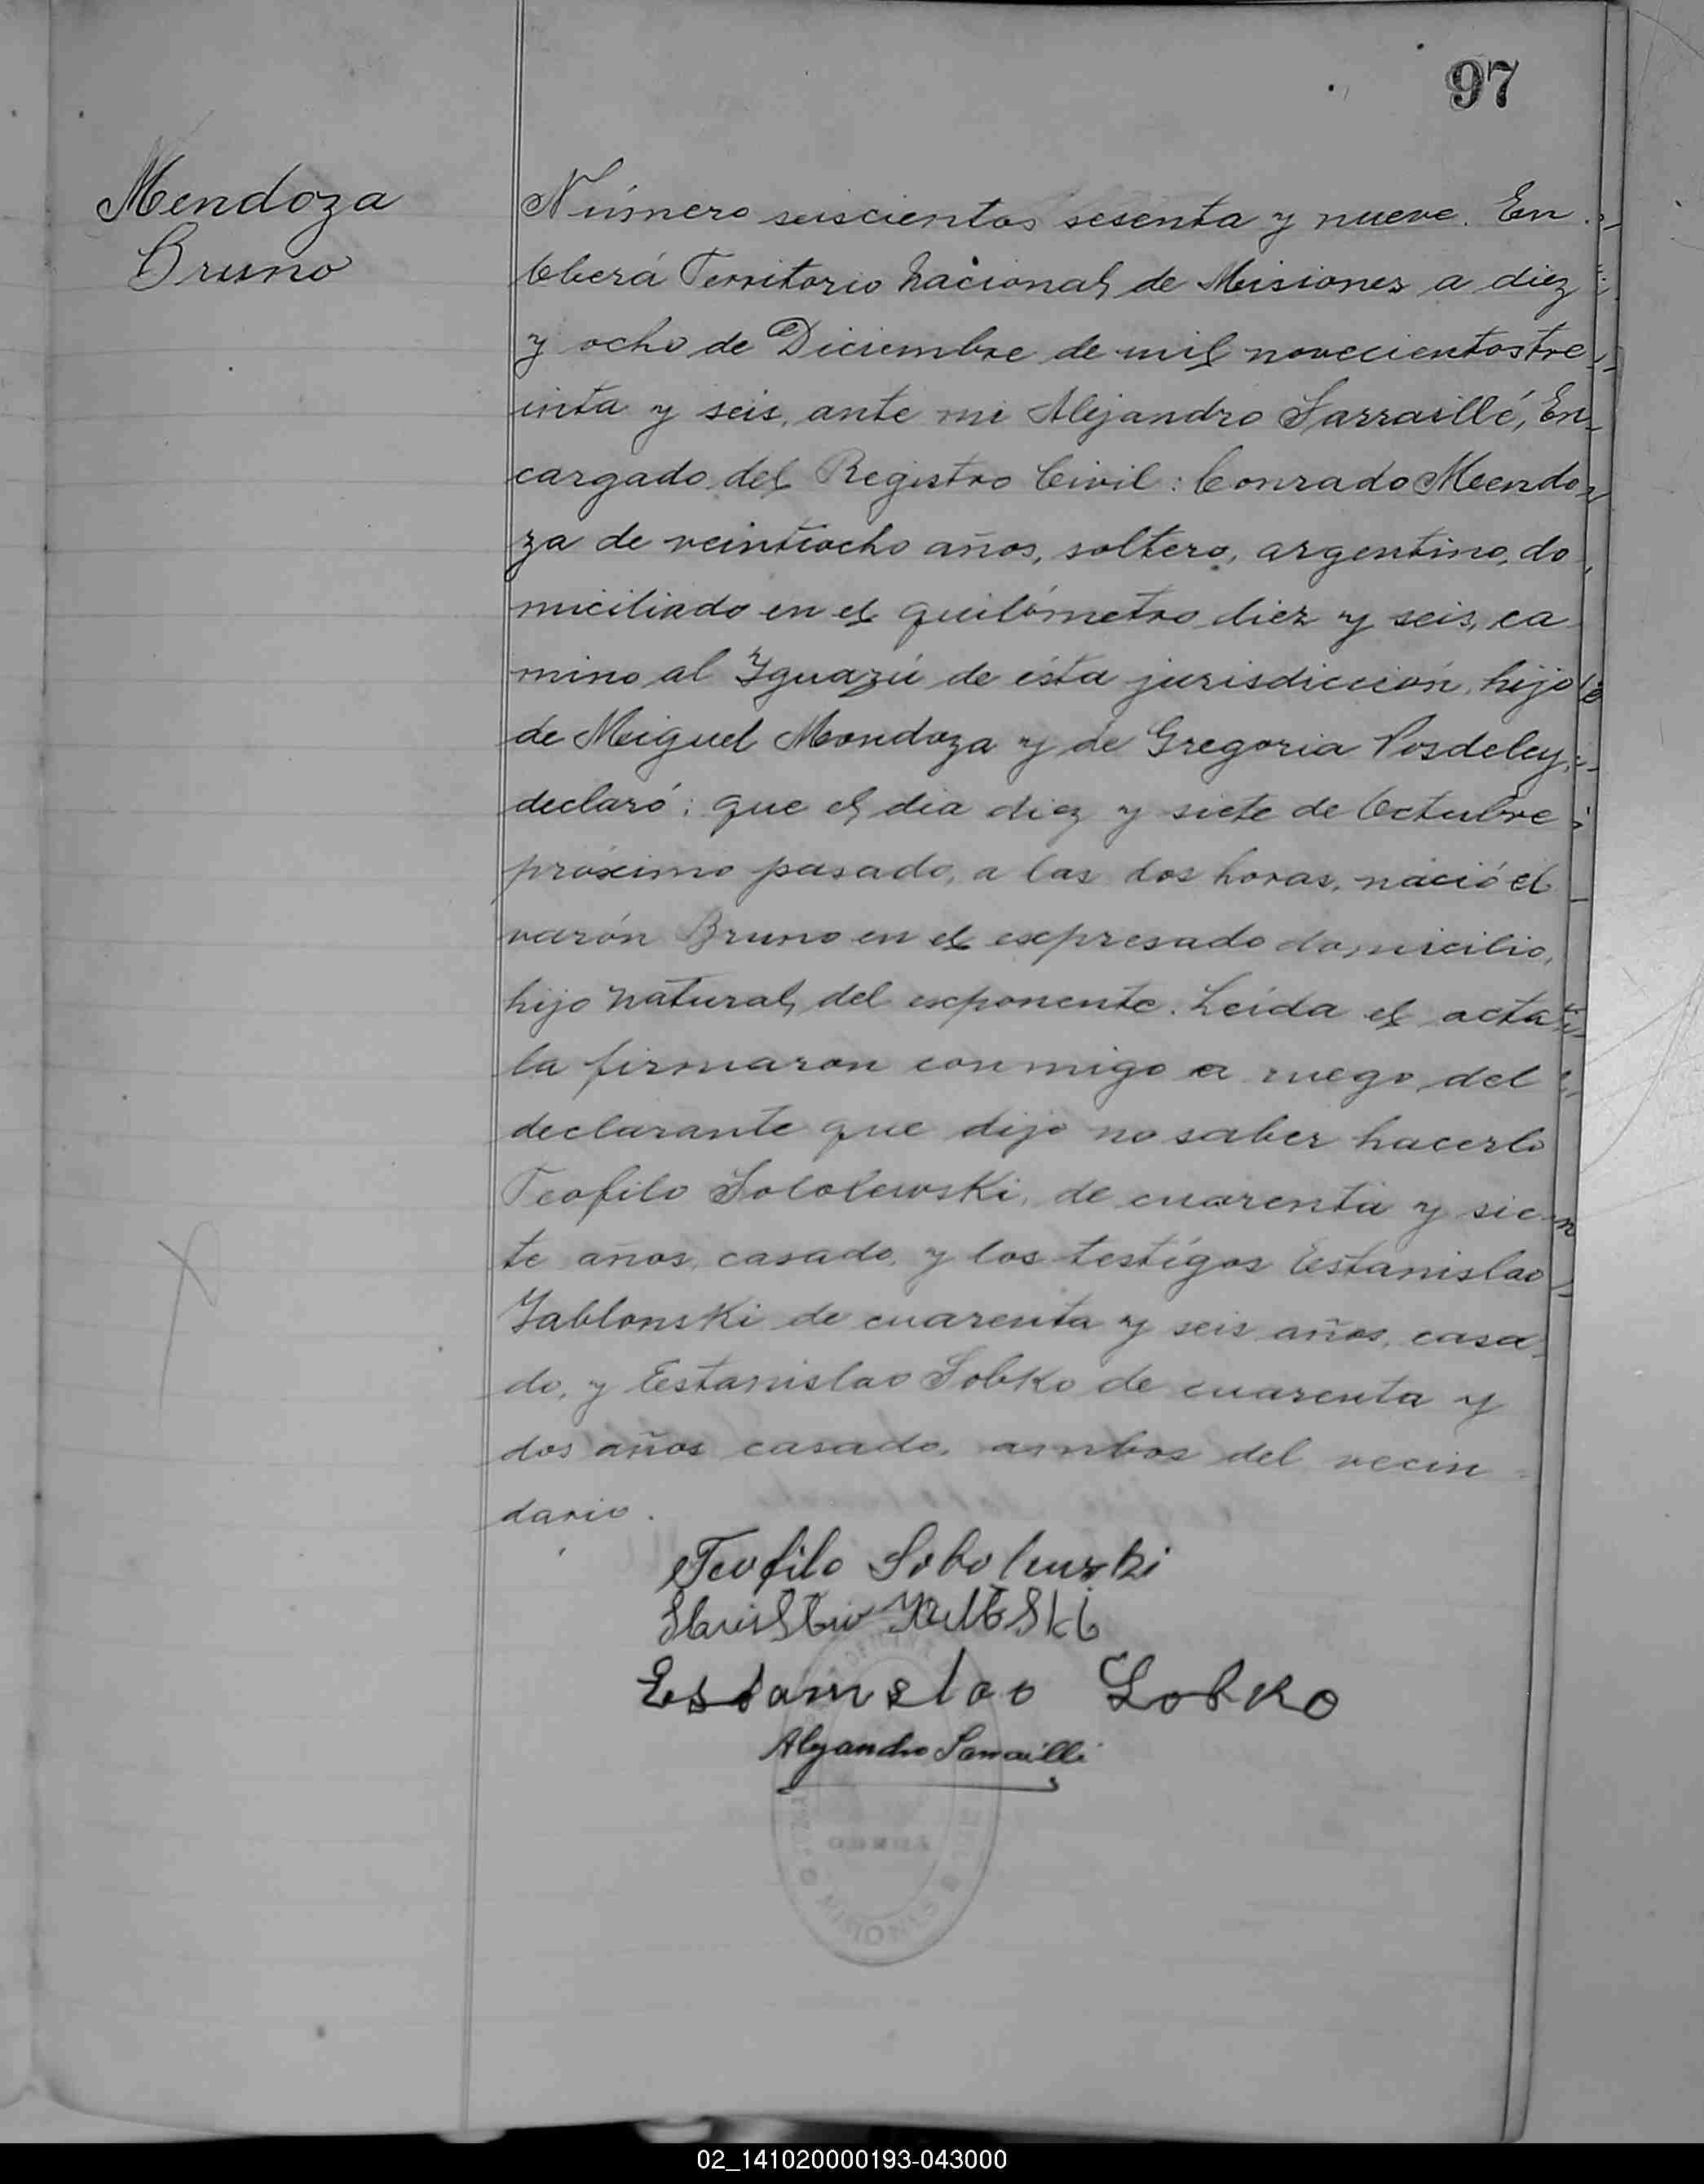 97
Mendoza
Bruno
Número seiscientos sesenta y nueve. En
Oberá Territorio Nacional de Misiones a diez
y ocho de Diciembre de mil novecientos tre
inta y seis, ante mi Alejandro Sarraillé, En
cargado del Registro Civil: Conrado Mendo
za de veintiocho años, soltero, argentino, do
miciliado en el quilómetro diez y seis, ca
mino al Yguazú de ésta jurisdicción, hijo
de Miguel Mendoza y de Gregoria Posdeley,
declaró: que el dia diez y siete de Octubre
próximo pasado, a las dos horas, nació el
varón Bruno en el expresado domicilio,
hijo natural del exponente. Leída el acta
la firmaron conmigo a ruego del
declarante que dijo no saber hacerlo
Teofilo Sobolewski, de cuarenta y sie
te años, casado, y los testigos Estanislao
Yablonski de cuarenta y seis años, casa
do, y Estanislao Sobko de cuarenta y
dos años casado, ambos del vecin
dario.
Teofilo Sobolewski
Estanislao Sobko
Alejandro Sarraillé
MISIONES
02_141020000193-043000